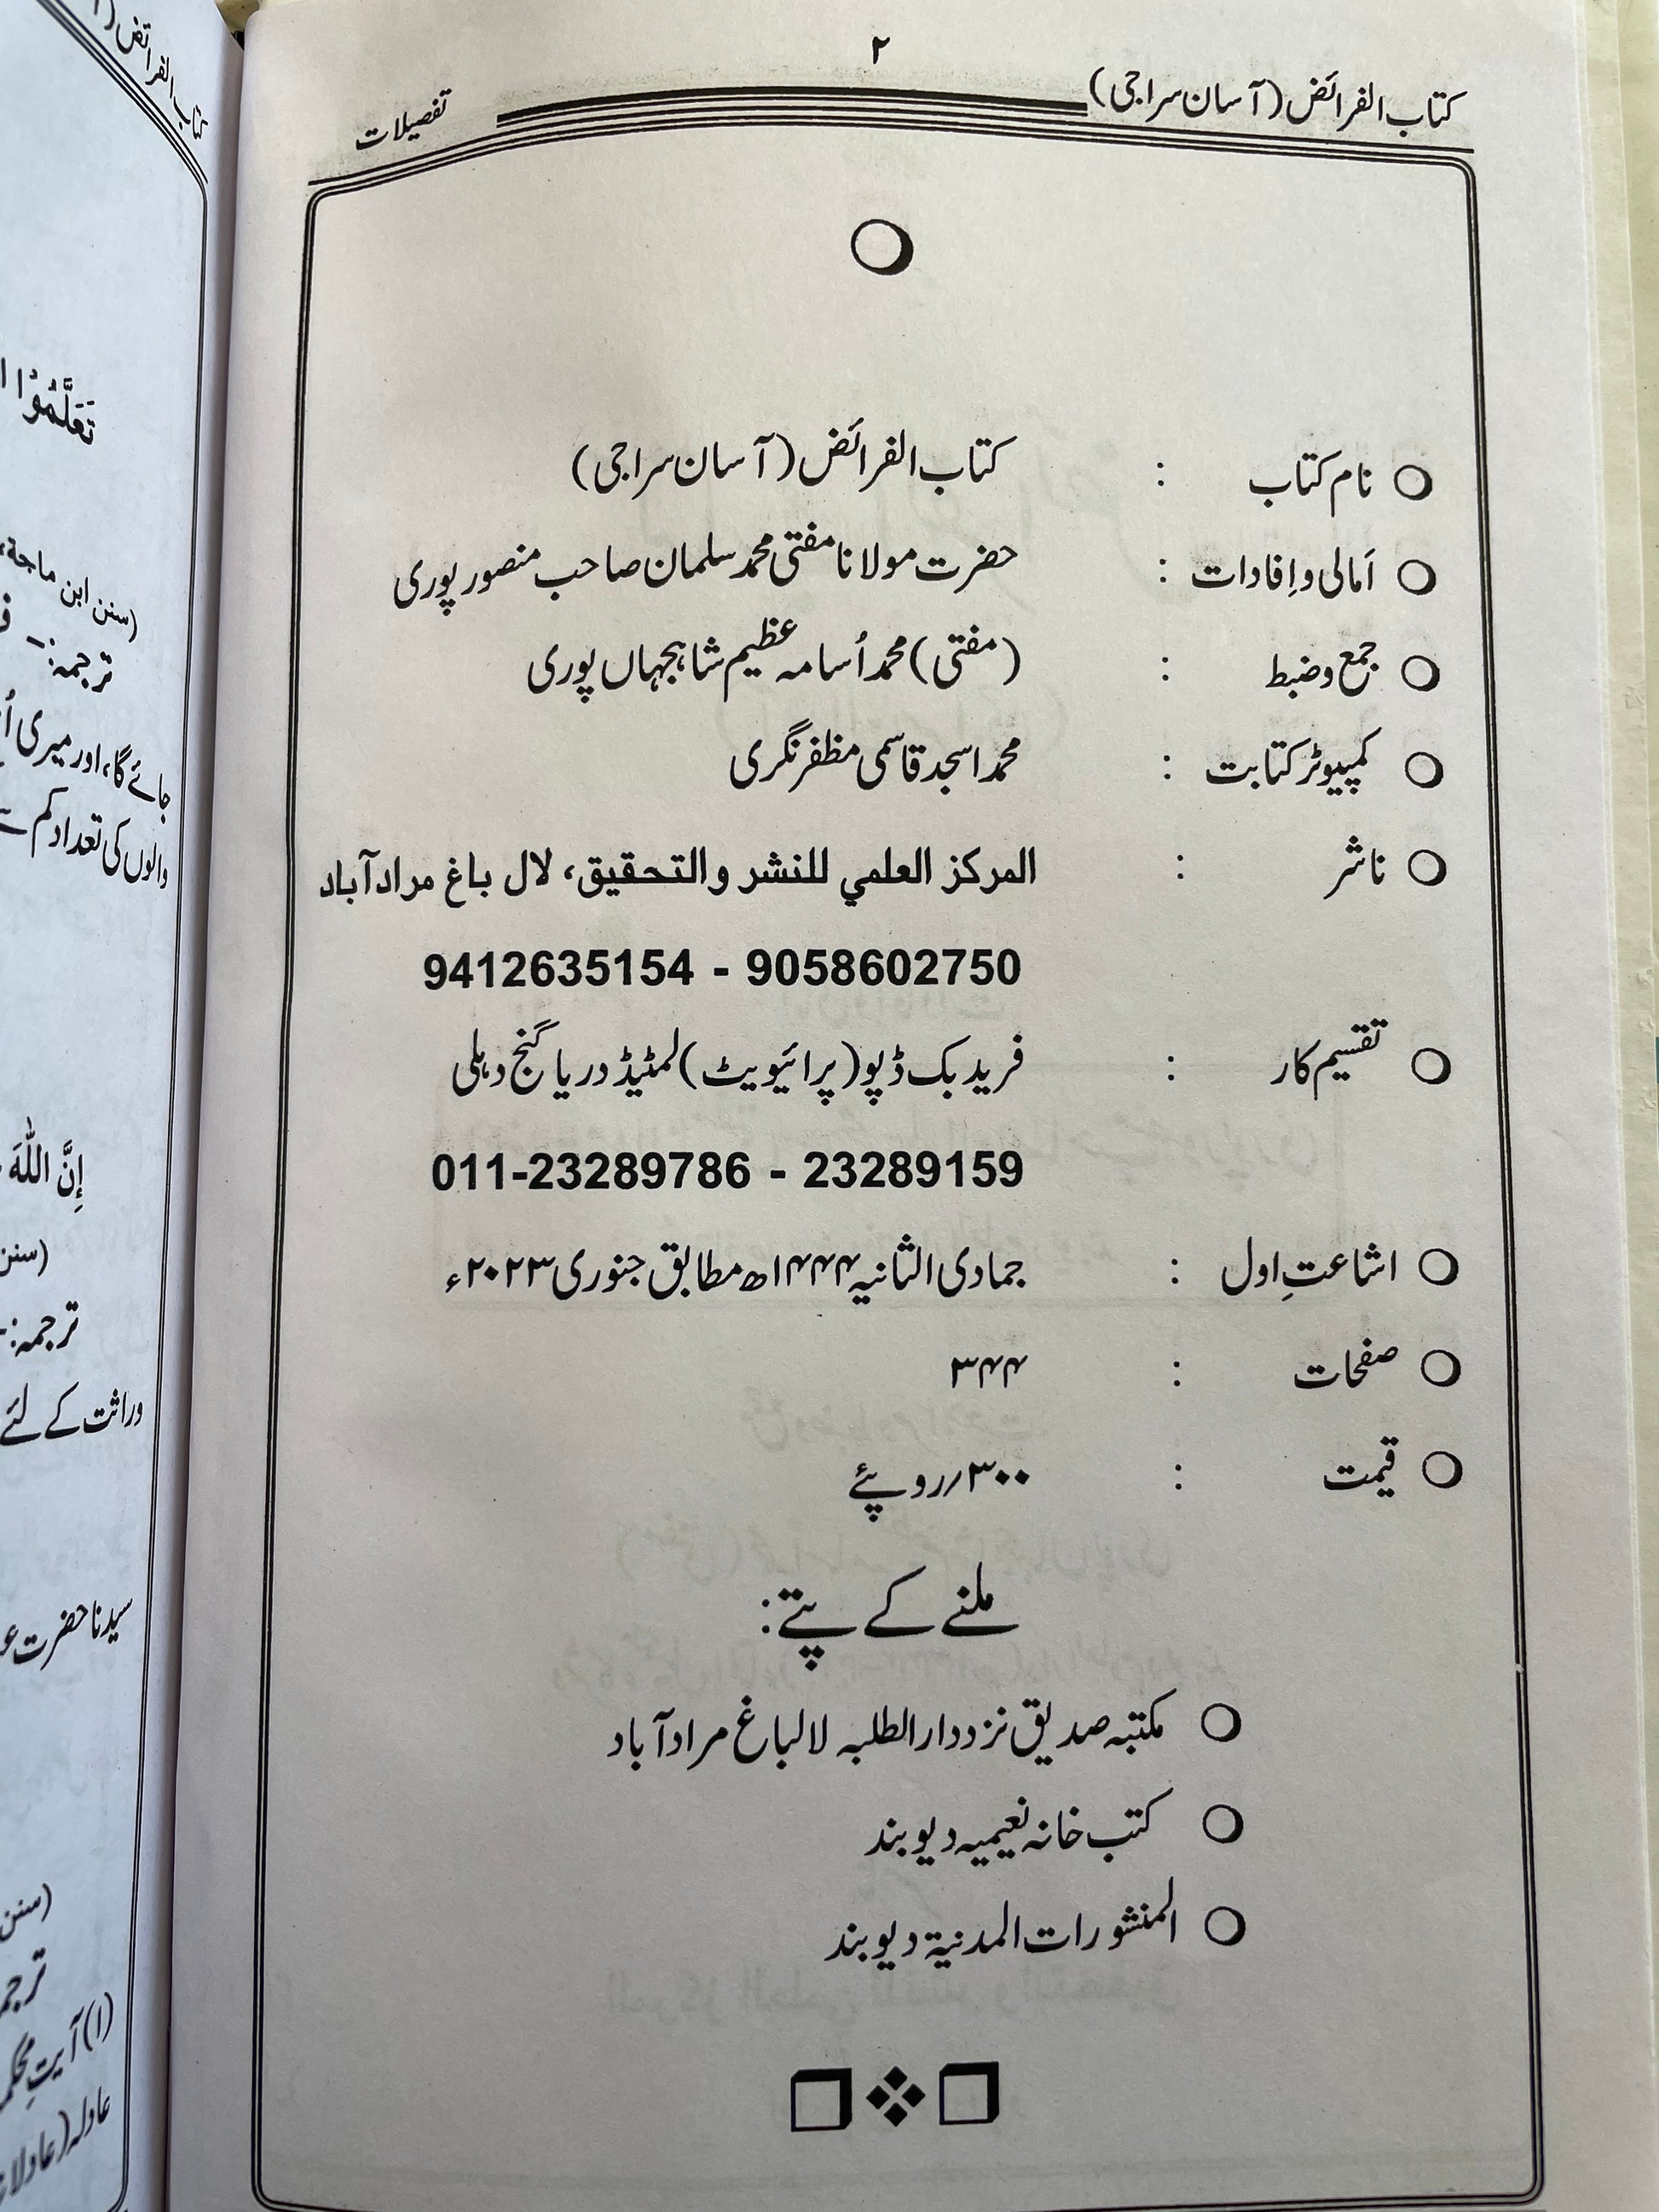 ۲
کتاب الفرائض (آسان سراجی)
تفصیلات
نام کتاب : کتاب الفرائض (آسان سراجی)
اَمالی و اِفادات : حضرت مولانا مفتی محمد سلمان صاحب منصور پوری
جمع و ضبط : (مفتی) محمد اُسامہ عظیم شاہجہاں پوری
کمپیوٹر کتابت : محمد اسجد قاسمی مظفرنگری
ناشر : المركز العلمي للنشر والتحقيق، لال باغ مرادآباد
9412635154 - 9058602750
تقسیم کار : فرید بک ڈپو (پرائیویٹ) لمٹیڈ دریا گنج دہلی
011-23289786 - 23289159
اشاعتِ اول : جمادی الثانیہ ۱۴۴۴ھ مطابق جنوری ۲۰۲۳ء
صفحات : ۳۴۴
قیمت : ۳۰۰؍روپئے
ملنے کے پتے:
مکتبہ صدیق نزد دارالطلبہ لالباغ مرادآباد
کتب خانہ نعیمیہ دیوبند
المنشورات المدنیۃ دیوبند
کتاب الفرائض (
تَعَلَّمُوْا
(سنن ابن ماجة،
ترجمہ:-
جائے گا، اور میری
والوں کی تعداد کم
إِنَّ اللّٰهَ
(سنن
ترجمہ:-
وراثت کے لئے
سیدنا حضرت
(سنن
(۱) آیتِ